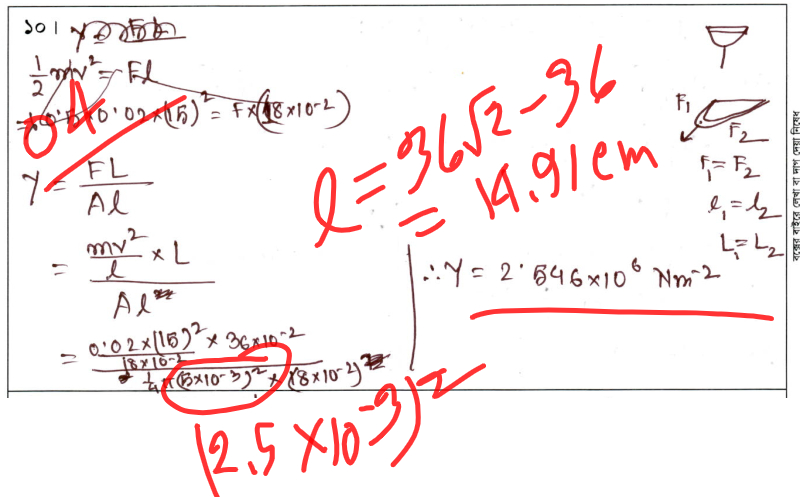 ১০।
½mv² = Fl
⇒ ½ 0.5 × 0.02 × (15)² = F × (18×10-2)
04
Y = FL / Al
= (mv²/l × L) / Al
= (0.02 × (15)² × 36×10-2 / 18×10-2) / (¼ × (5×10-3)² × (18×10-2))
(2.5 × 10-3)²
l = 36√2 - 36
= 14.91 cm
∴ Y = 2.546×10⁶ Nm-2
F₁
F₂
F₁ = F₂
l₁ = l₂
L₁ = L₂
বক্সের বাইরে লেখা বা দাগ দেয়া নিষেধ